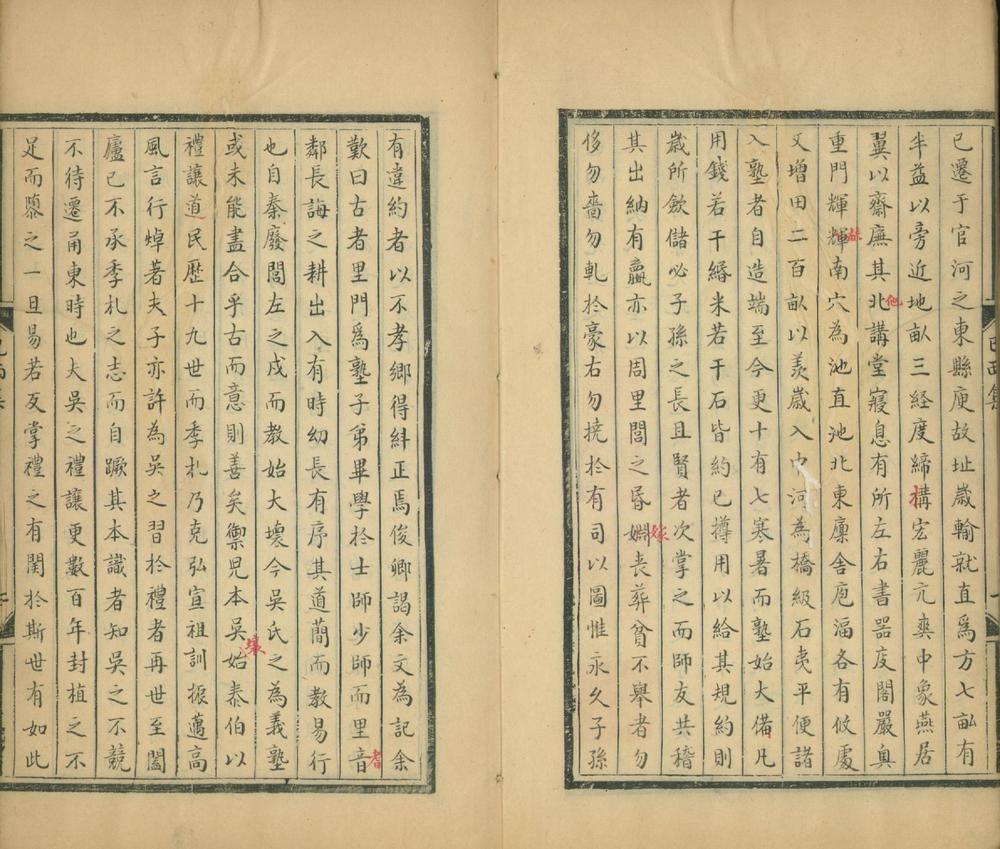 已遷于官河之東縣庾故址歲輸就直爲方七畝有
半益以旁近地畝三経度締構宏麗亢爽中象燕居
翼以齋廡其北講堂寢息有所左右書器庋閣嚴奥
他
重門輝輝南穴為池直池北東廩舍庖湢各有攸處
又增田二百畝以羡歲入中河為橋級石夷平便諸
入塾者自造端至今更十有七寒暑而塾始大備凡
用錢若干緡米若干石皆約已撙用以給其規約則
歲所斂儲必子孫之長且賢者次掌之而師友共稽
其出納有贏亦以周里閭之昏嫺丧葬貧不舉者勿
嫁
侈勿嗇勿軋於豪右勿撓於有司以圖惟永久子孫
有違約者以不孝鄉得紏正焉俊卿謁余文為記余
歎曰古者里門爲塾子弟畢學於士師少師而里音
者
鄰長誨之耕出入有時幼長有序其道蕑而教易行
也自秦廢閭左之戍而教始大壞今吳氏之為義塾
或未能盡合乎古而意則善矣禦兒本吳始泰伯以
禮讓道民歷十九世而季札乃克弘宣祖訓振邁高
風言行焯著夫子亦許為吳之習於禮者再世至闔
廬已不承季札之志而自蹶其本識者知吳之不競
不待遷甬東時也夫吳之禮讓更數百年封植之不
足而隳之一旦易若反掌禮之有関於斯世有如此